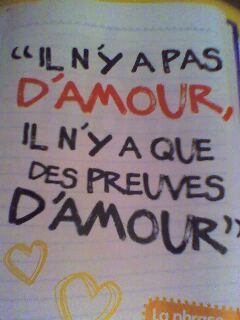 “IL N'Y A PAS
D'AMOUR,
IL N'Y A QUE
DES PREUVES
D'AMOUR”
La phrase